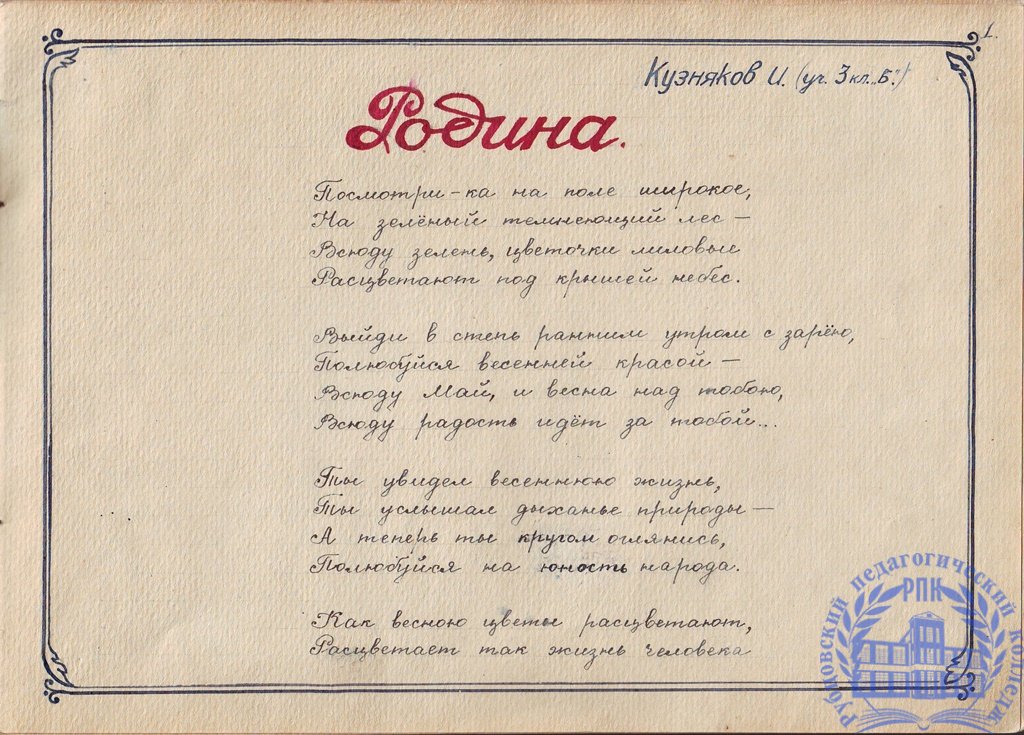 1.
Кузняков И. (уч. 3 кл. „Б“.)
Родина.
Посмотри-ка на поле широкое,
На зелёный темнеющий лес –
Всюду зелень, цветочки лиловые
Расцветают под крышей небес.
Выйди в степь ранним утром с зарёю,
Полюбуйся весенней красой –
Всюду Май, и весна над тобою,
Всюду радость идёт за тобой...
Ты увидел весеннюю жизнь,
Ты услышал дыханье природы –
А теперь ты кругом оглянись,
Полюбуйся на юность народа.
Как весною цветы расцветают,
Расцветает так жизнь человека
Рубцовский педагогический колледж
РПК